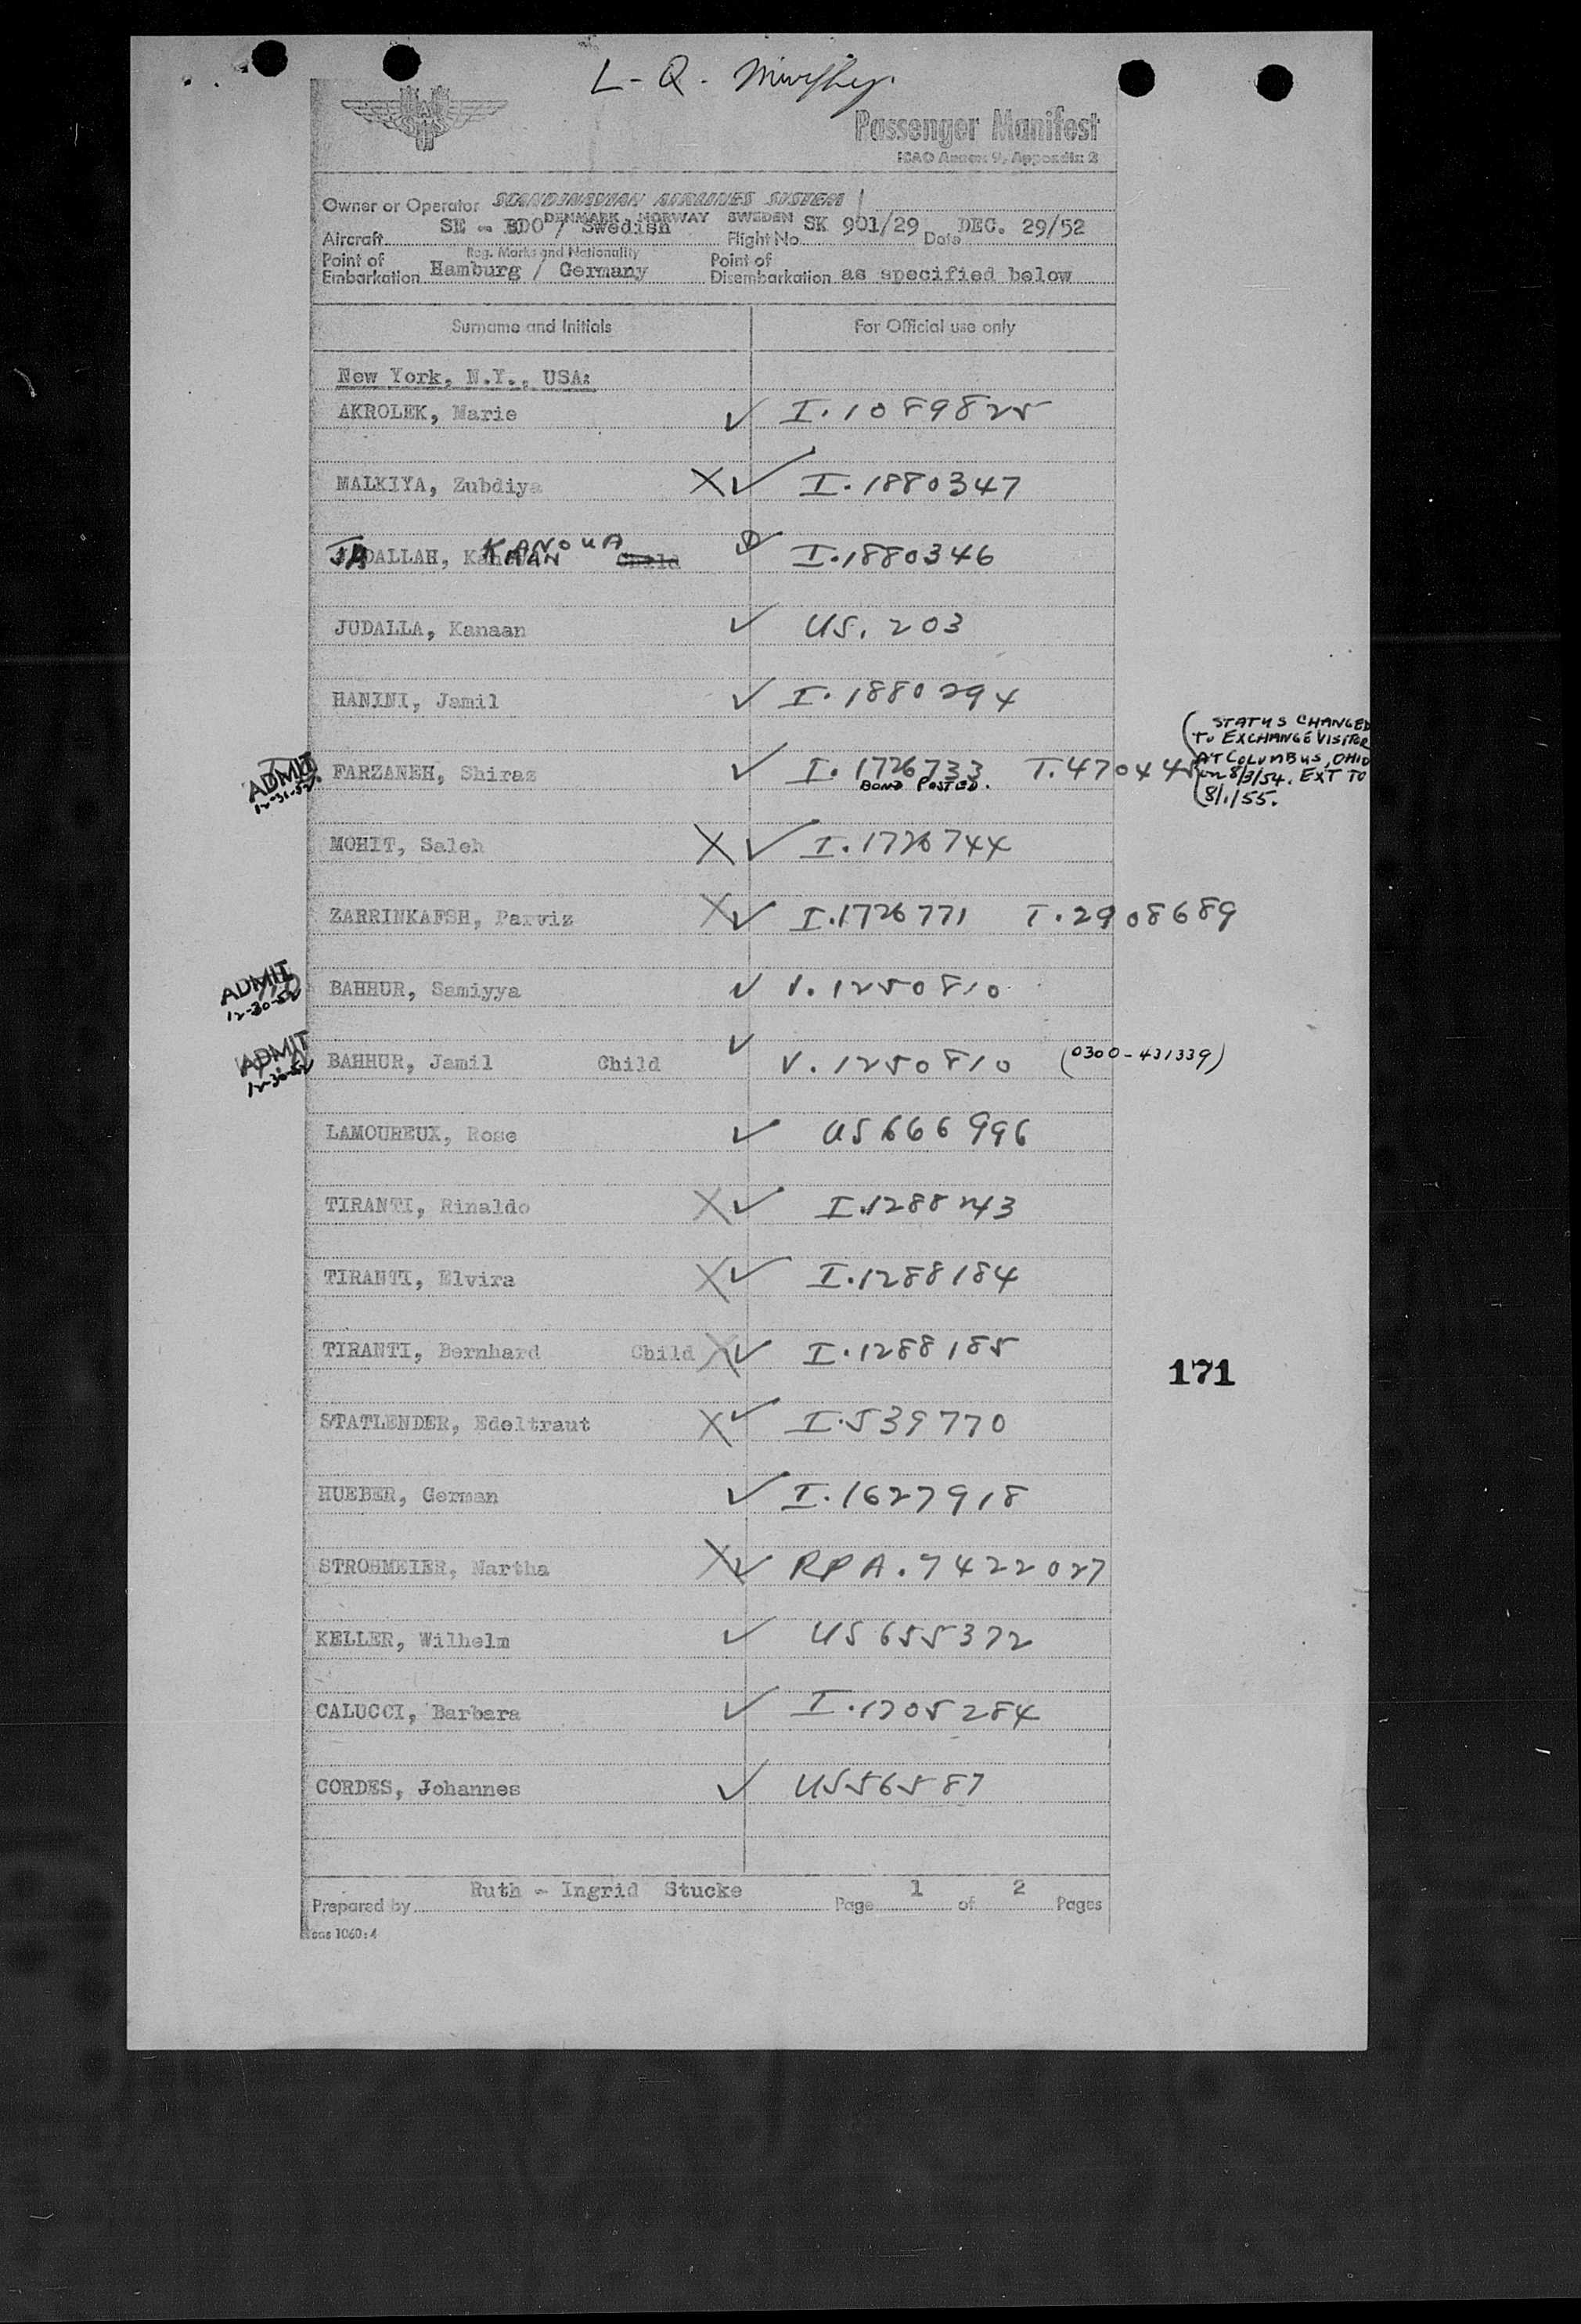 L - Q - Murphy.
Passenger Manifest
ICAO Annex 9, Appendix 2
Owner or Operator SCANDINAVIAN AIRLINES SYSTEM
DENMARK NORWAY SWEDEN
Aircraft SE - BDO / Swedish Flight No SK 901/29 Date DEC. 29/52
Reg. Marks and Nationality
Point of Embarkation Hamburg / Germany Point of Disembarkation as specified below
Surname and Initials For Official use only
New York, N.Y., USA:
AKROLEK, Marie I.1089825
MALKIYA, Zubdiya X I.1880347
JADALLAH, KANAAN KANOUA Child I.1880346
JUDALLA, Kanaan US. 203
HANINI, Jamil I.1880294
STATUS CHANGED
TO EXCHANGE VISITOR
AT COLUMBUS, OHIO
on 8/3/54. EXT TO
8/1/55.
ADMIT 12-31-52 FARZANEH, Shiraz I.1726733 T.470445
BOND POSTED.
MOHIT, Saleh X I.1726744
ZARRINKAFSH, Parviz X I.1726771 T.2908689
ADMIT 12-30-52 BAHHUR, Samiyya V.1250810
ADMIT 12-30-52 BAHHUR, Jamil Child V.1250810 (0300-431339)
LAMOUREUX, Rose US 666996
TIRANTI, Rinaldo X I.1288243
TIRANTI, Elvira X I.1288184
TIRANTI, Bernhard Child X I.1288185
171
STATLENDER, Edeltraut X I.539770
HUEBER, German I.1627918
STROHMEIER, Martha X RPA.7422027
KELLER, Wilhelm US 655372
CALUCCI, Barbara I.1705284
CORDES, Johannes US56587
Prepared by Ruth - Ingrid Stucke Page 1 of 2 Pages
sas 1060:4